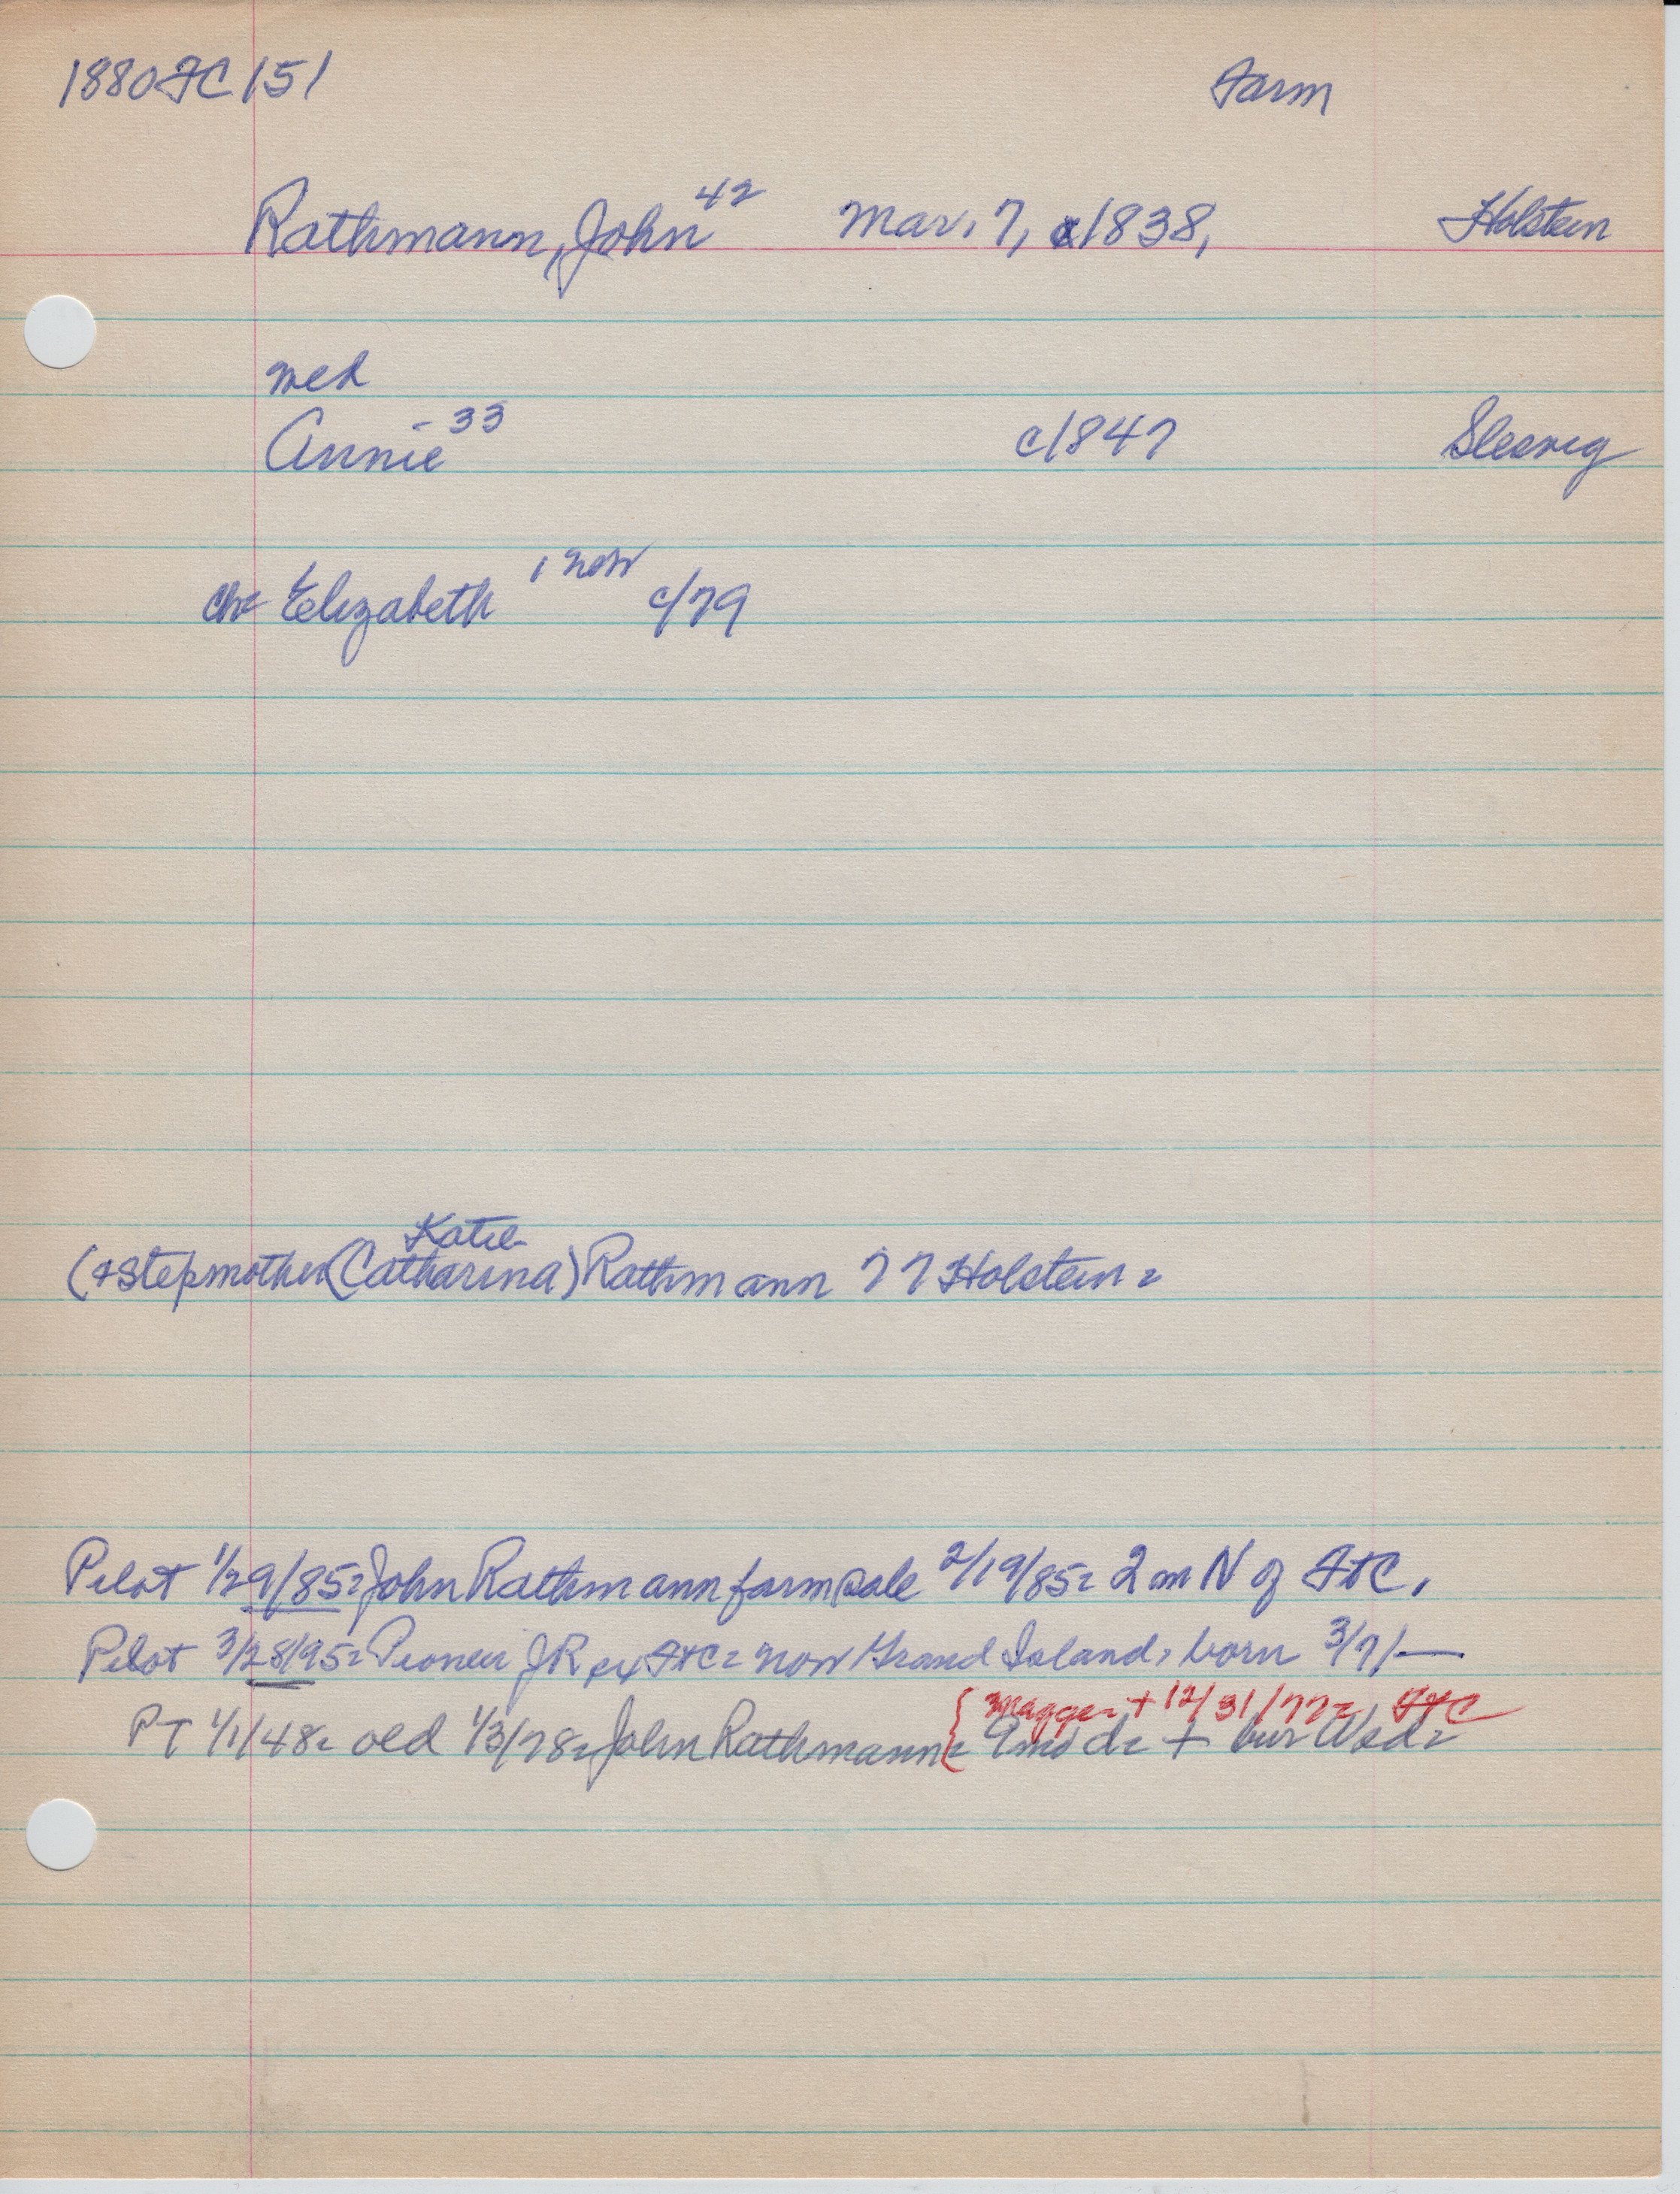 1880 FC 151 Farm
Rathmann, John 42 Mar. 7, c1838, Holstein
wed
Annie - 33 c1847 Slesvig
ch= Elizabeth 1 now c/79
Katie
(+ stepmother (Catharina) Rathmann 77 Holstein =
Pilot 1/29/85 = John Rathmann farm sale 2/19/85 = 2 m N of FtC.
Pilot 3/28/95 = Pioneer JR ex FtC = now Grand Island, born 3/7/—
{ Magge = + 12/31/77 = FtC
PT 1/1/48 = old 1/3/78 = John Rathmann = 9 mo d = + bur Wed =